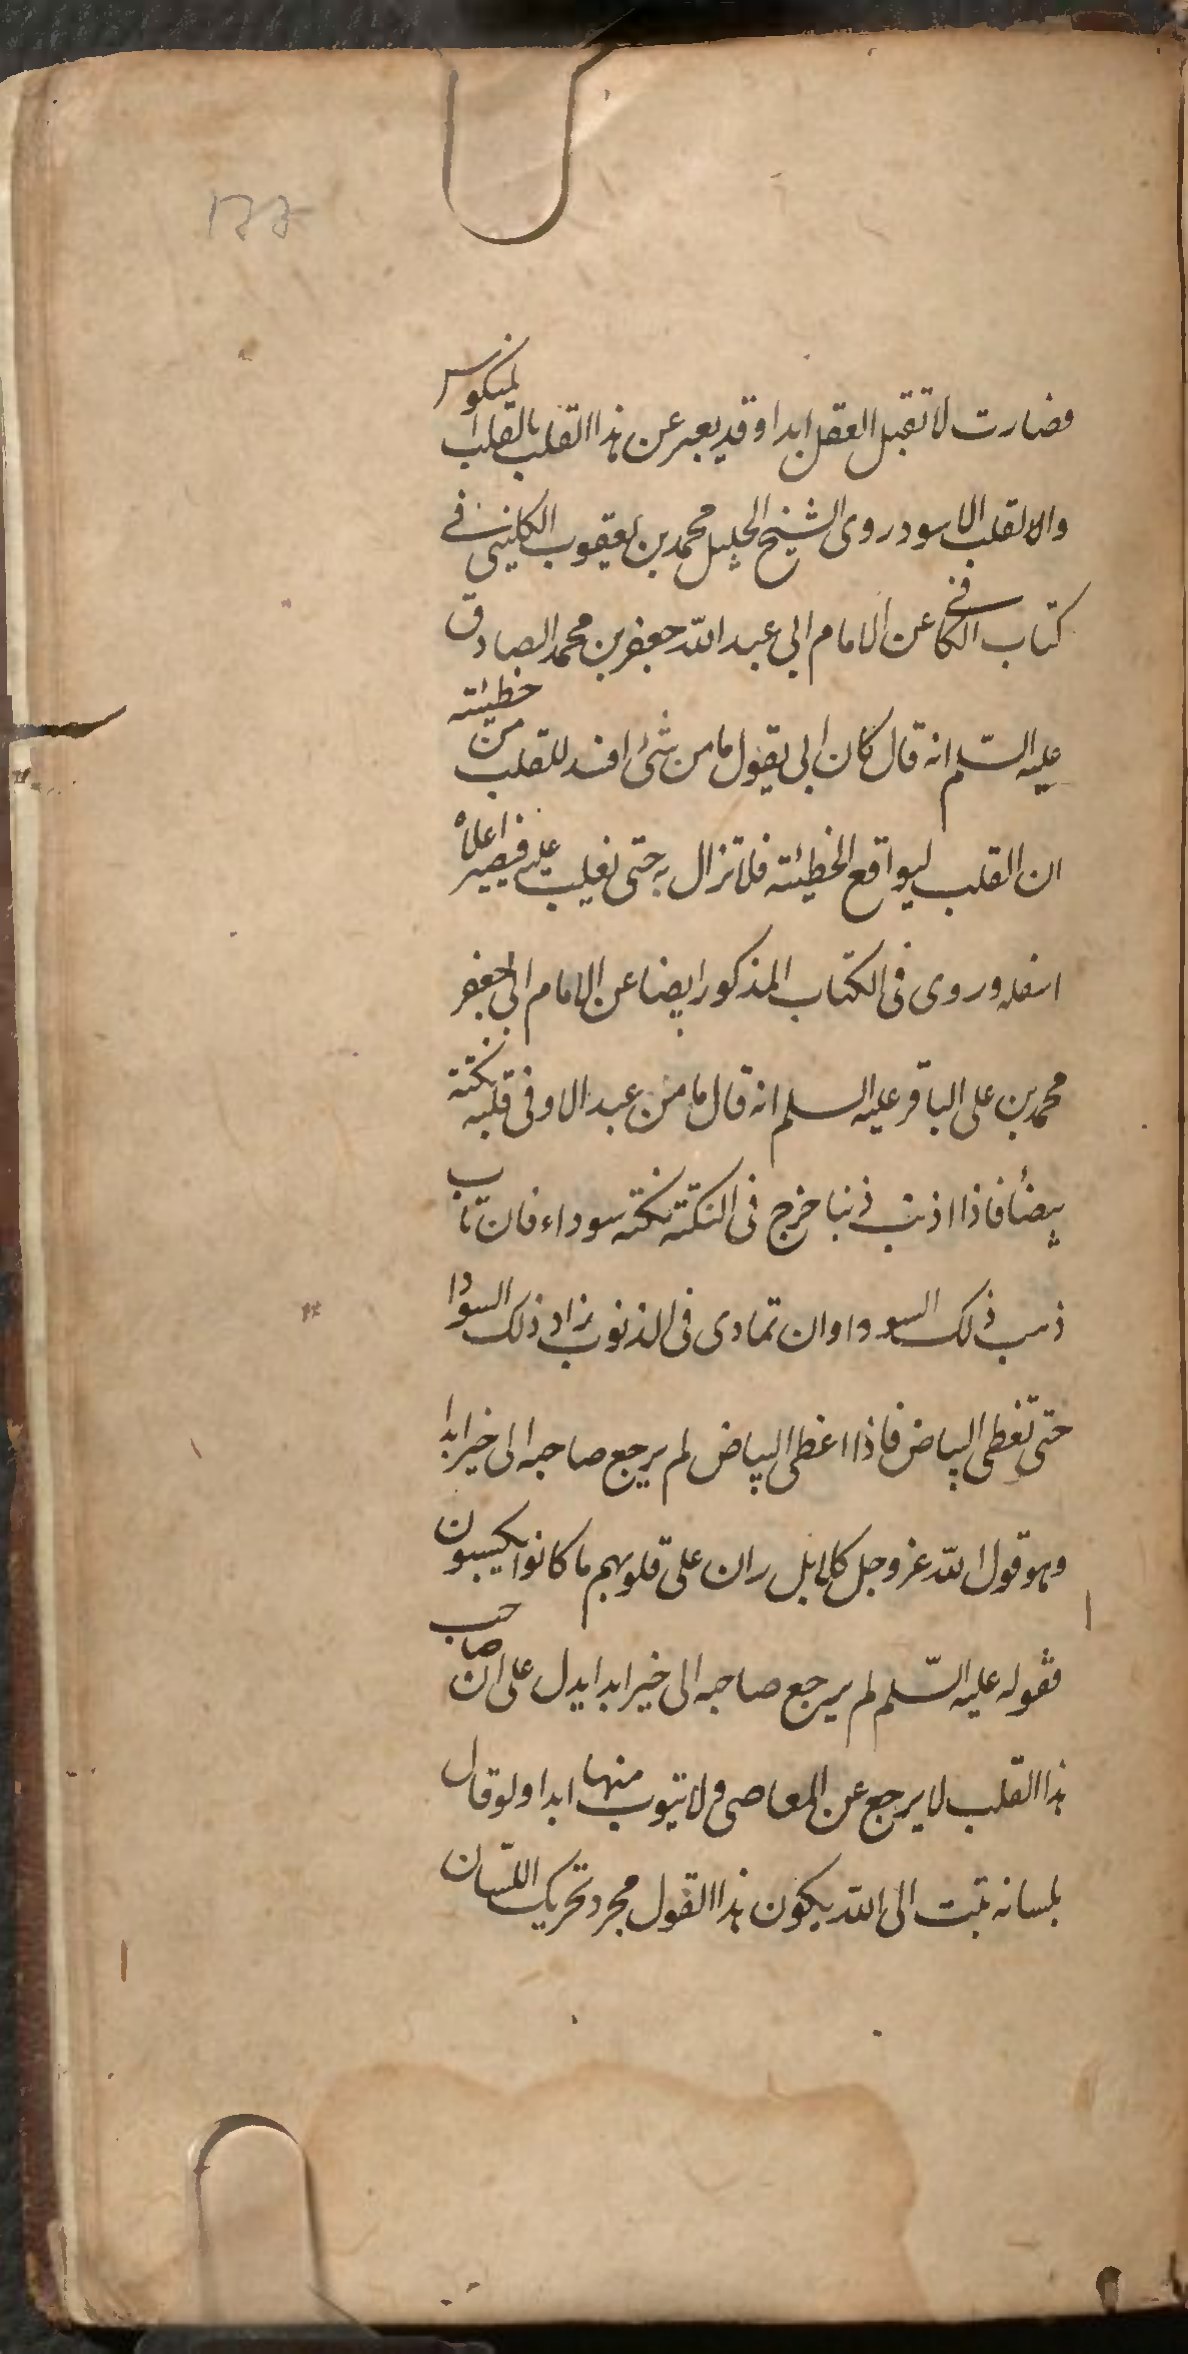 فصارت لا تقبل العقل ابدا وقد يعبر عن هذا القلب بالقلب المنكوس
والالقلب الاسود روى الشيخ الجليل محمد بن يعقوب الكليني في
كتاب الكافي عن الامام ابي عبد الله جعفر بن محمد الصادق
عليه السّلم انه قال كان ابي يقول ما من شئ افسد للقلب من خطيئته
ان القلب ليواقع الخطيئته فلا تزال به حتى تغلب عليه فيصير اعلاه
اسفله وروى في الكتاب المذكور ايضا عن الامام ابي جعفر
محمد بن على الباقر عليه السلم انه قال ما من عبد الا وفي قلبه نكتة
بيضأ فاذا اذنب ذنبا خرج في النكتة نكتة سوداء فان تاب
ذهب ذلك السودا وان تمادى في الذنوب زاد ذلك السودا
حتى تغطى البياض فاذا اغطى البياض لم يرجع صاحبه الى خير ابدا
وهو قول الله عز وجل كلا بل ران على قلوبهم ما كانوا يكسبون
فقوله عليه السّلم لم يرجع صاحبه الى خير ابدا يدل على ان صاحب
هذا القلب لا يرجع عن المعاصى ولا يتوب منها ابدا ولو قال
بلسانه تبت الى الله يكون هذا القول مجرد تحريك اللسان